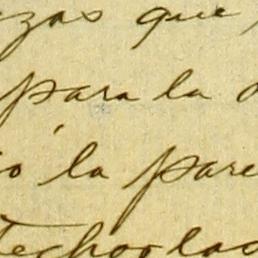 zas que
para la
ó la pare
techo las